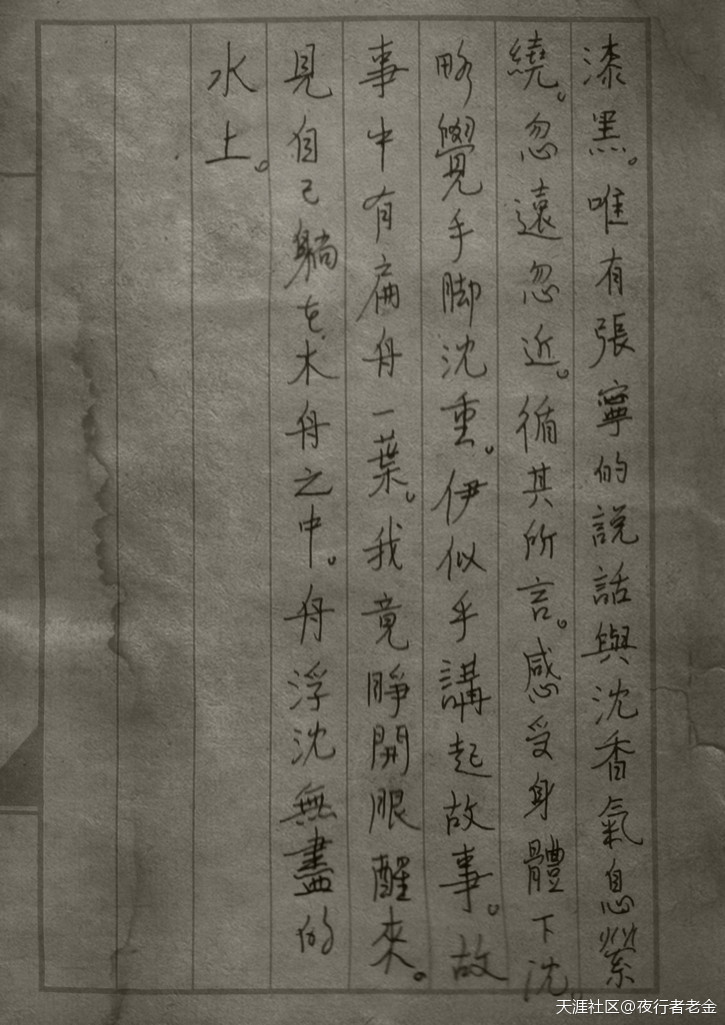 漆黑。唯有張寧的說話與沈香氣息縈
繞。忽遠忽近。循其所言。感受身體下沈。
略覺手脚沈重。伊似乎講起故事。故
事中有扁舟一葉。我竟睜開眼醒來。
見自己躺在木舟之中。舟浮沈無盡的
水上。
天涯社区@夜行者老金